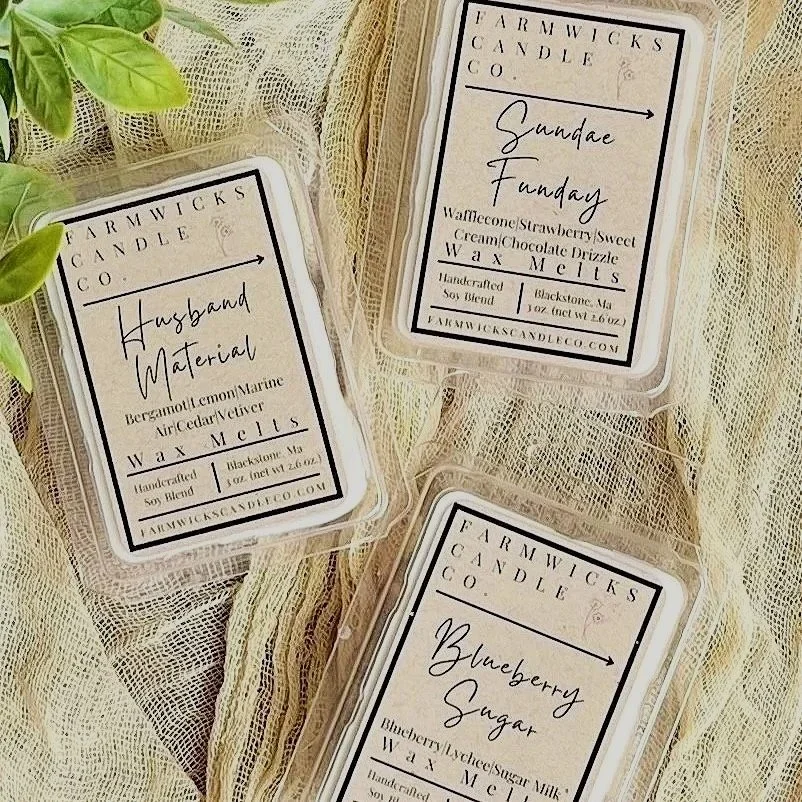 FARMWICKS
CANDLE
CO.
Sundae
Funday
Wafflecone|Strawberry|Sweet
Cream|Chocolate Drizzle
Wax Melts
Handcrafted
Soy Blend
Blackstone, Ma
3 oz. (net wt 2.6 oz.)
FARMWICKSCANDLECO.COM
FARMWICKS
CANDLE
CO.
Husband
Material
Bergamot|Lemon|Marine
Air|Cedar|Vetiver
Wax Melts
Handcrafted
Soy Blend
Blackstone, Ma
3 oz. (net wt 2.6 oz.)
FARMWICKSCANDLECO.COM
FARMWICKS
CANDLE
CO.
Blueberry
Sugar
Blueberry|Lychee|Sugar Milk
Wax Melts
Handcrafted
Soy